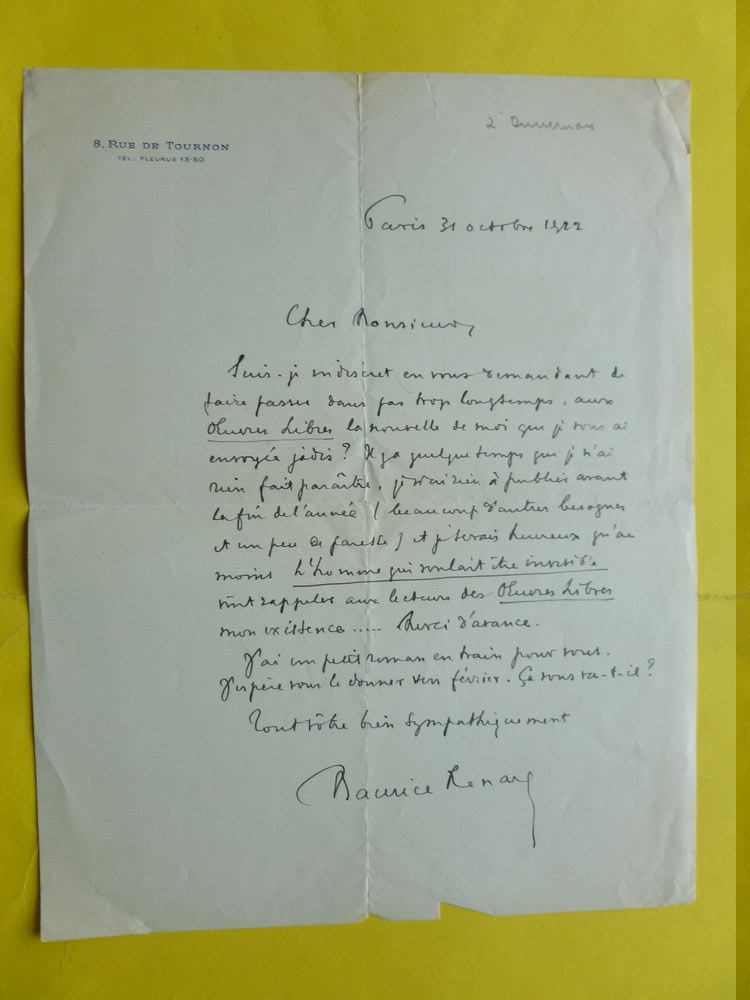 8, RUE DE TOURNON
TÉL: FLEURUS 13-50
Paris 31 octobre 1922
Cher Monsieur,
Suis-je indiscret en vous demandant de
faire passer dans pas trop longtemps, aux
Œuvres Libres la nouvelle de moi que je vous ai
envoyée jadis ? Il y a quelque temps que je n'ai
rien fait paraître, je n'ai rien à publier avant
la fin de l'année (beaucoup d'autres besognes
et un peu de paresse) et je serais heureux qu'au
moins L'homme qui voulait être invisible
vînt rappeler aux lecteurs des Œuvres Libres
mon existence ..... Merci d'avance.
J'ai un petit roman en train pour vous.
J'espère vous le donner vers février. Ça vous va-t-il ?
Tout vôtre bien sympathiquement
Maurice Renard